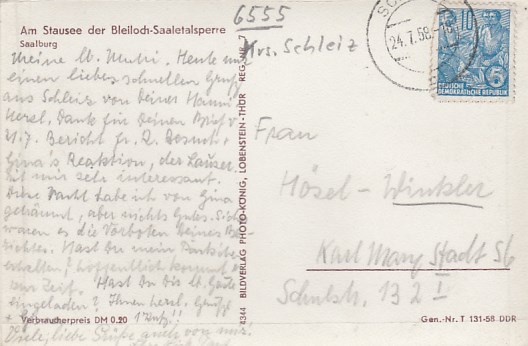 Am Stausee der Bleiloch-Saaletalsperre
Saalburg
6555
Krs. Schleiz
24.7.58
10
DEUTSCHE
DEMOKRATISCHE REPUBLIK
Meine lb. Mutti. Heute nur
einen lieben schnellen Gruß
aus Schleiz von Deiner Hanni
Herzl. Dank für Deinen Brief v.
Bericht fr. Besuch,
Gina's Reaktion, der Lauser.
ist mir sehr interessant.
Diese Nacht habe ich von Gina
geträumt, aber nichts Gutes.
waren es die Vorboten Deines
richtes. Hast Du mein
erhalten? hoffentlich kommt es
zur Zeit. Hast Du die lb. Gäste
eingeladen? Ihnen herzl. Grüße
Viele, liebe Grüße auch von
Verbraucherpreis DM 0.20
4344 BILDVERLAG PHOTO-KÖNIG, LOBENSTEIN-THÜR REG.-NR. 7
Frau
Hösel - Winkler
Karl Marx Stadt S6
Schulstr. 132 I
Gen.-Nr. T 131-58 DDR